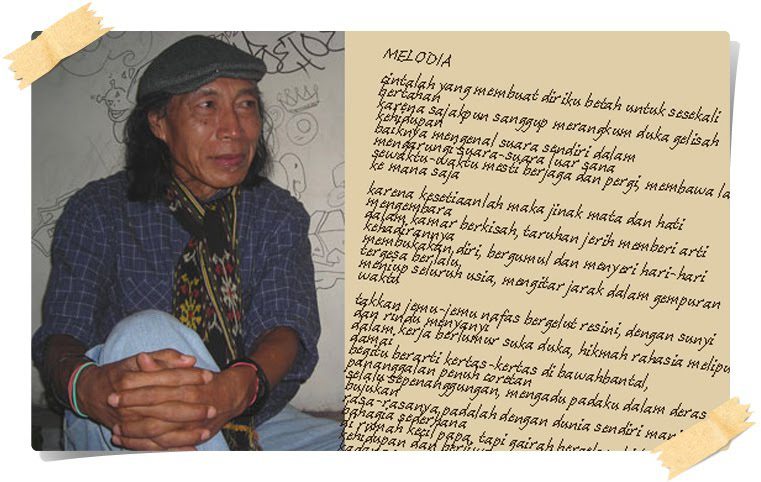 MELODIA
cintalah yang membuat diriku betah untuk sesekali
bertahan
karena sajakpun sanggup merangkum duka gelisah
kehidupan
baiknya mengenal suara sendiri dalam
mengarungi suara-suara luar sana
sewaktu-waktu mesti berjaga dan pergi, membawa la
ke mana saja
karena kesetiaanlah maka jinak mata dan hati
mengembara
dalam kamar berkisah, taruhan jerih memberi arti
kehadirannya
membukakan diri, bergumul dan menyeri hari-hari
tergesa berlalu
meniup seluruh usia, mengitar jarak dalam gempuran
waktu
takkan jemu-jemu nafas bergelut resini, dengan sunyi
dan rindu menyanyi
dalam kerja berlumur suka duka, hikmah rahasia melipu
damai
begitu berarti kertas-kertas di bawahbantal,
pananggalan penuh coretan
selalu sepenanggungan, mengadu padaku dalam deras
bujukan
rasa-rasanya padalah dengan dunia sendiri
bahagia sederhana
di rumah kecil papa, tapi gairah
kehidupan dan